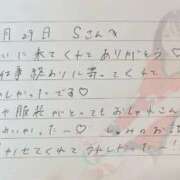 月29日 Sさんへ
いに来てくれてありがとう♡
仕事終わりに寄ってくれて
しかったです♡
や服装がとってもおしゃれさん
かいかった〜♡
かせてくれてうれしかった〜!